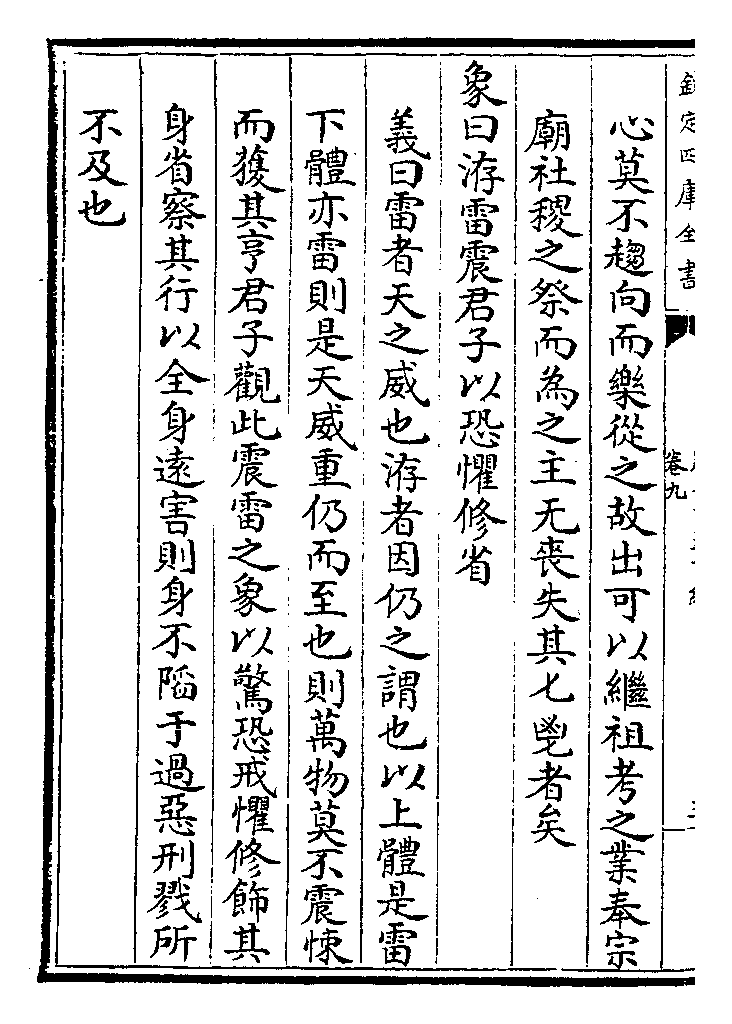 欽定四庫全書
卷九
心莫不趨向而樂從之故出可以繼祖考之業奉宗
廟社稷之祭而為之主无喪失其七鬯者矣
象曰洊雷震君子以恐懼修省
義曰雷者天之威也洊者因仍之謂也以上體是雷
下體亦雷則是天威重仍而至也則萬物莫不震悚
而獲其亨君子觀此震雷之象以驚恐戒懼修飾其
身省察其行以全身遠害則身不陷于過惡刑戮所
不及也